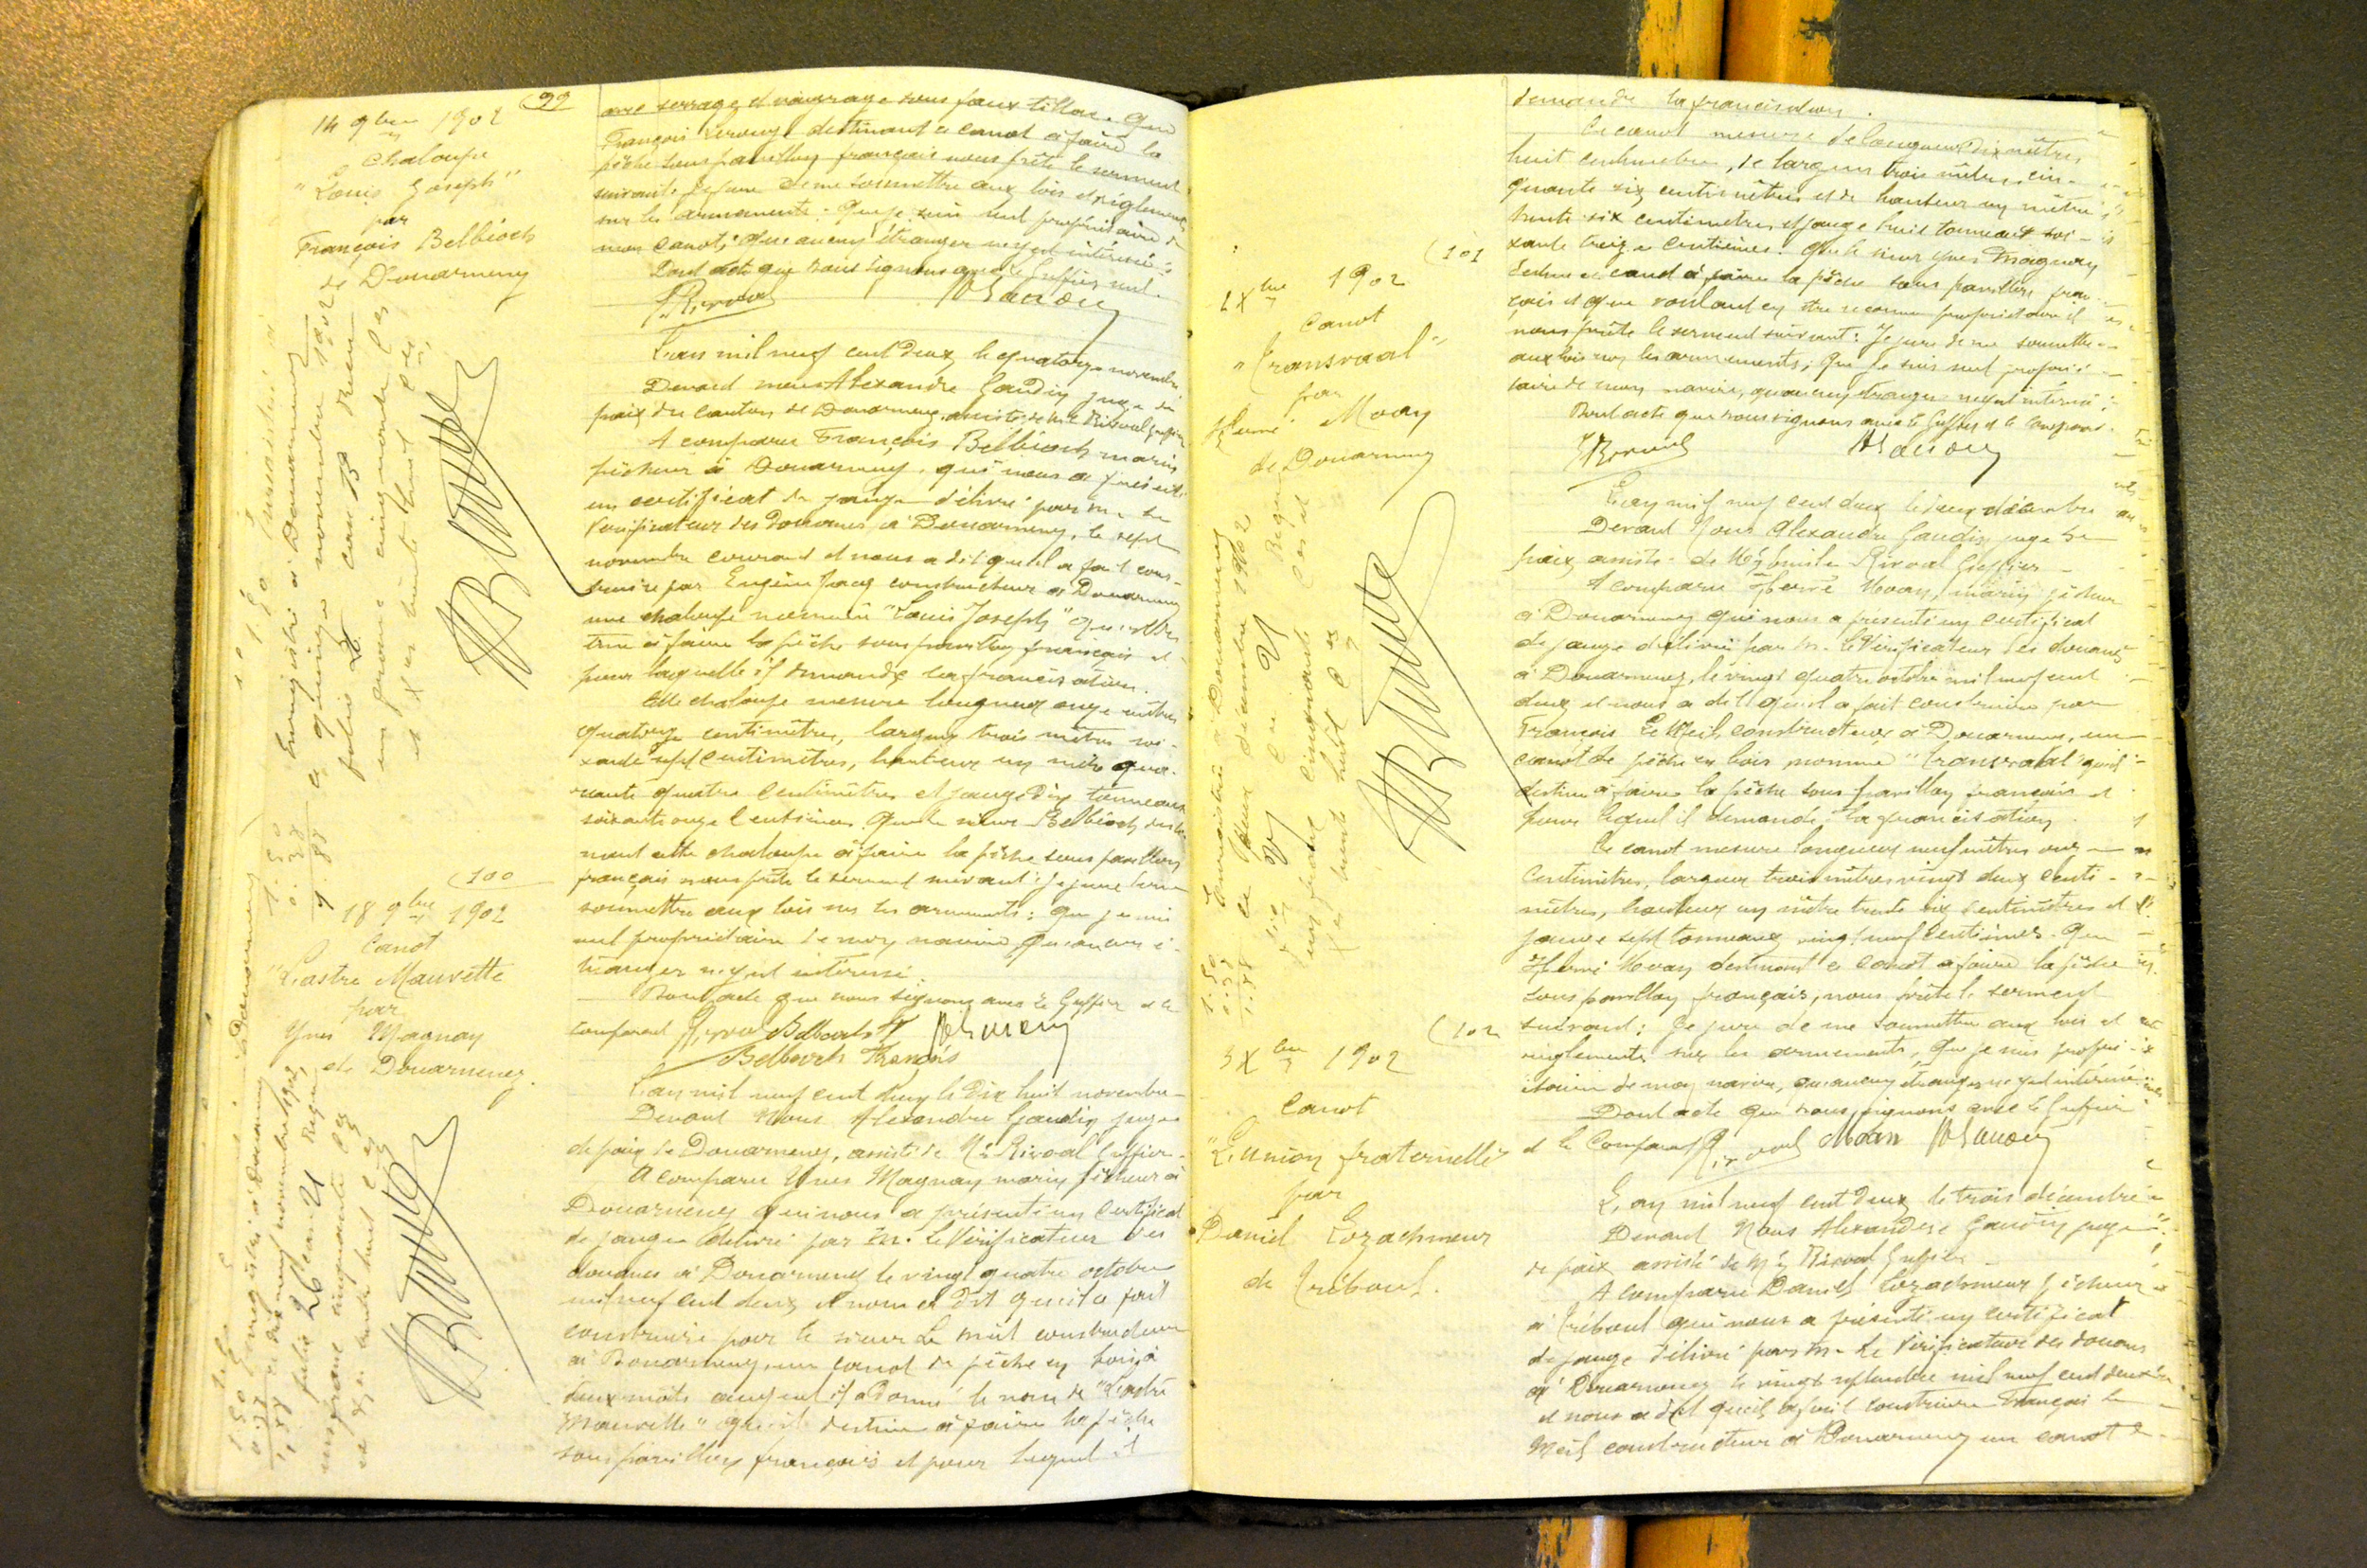 99
14 9bre 1902
Chaloupe
"Louis Joseph"
par
François Belbéoch
de Douarnenez
Enregistré à Douarnenez
le quinze novembre 1902
folio 26 case 13 Reçu
un franc cinquante ces
et Xes trente huit ces
1.50
0.38
1.88
100
18 9bre 1902
Canot
"L'astre Mauvette
par
Yves Magnay
de Douarnenez.
Enregistré à Douarnenez
le dix neuf novembre 1902,
folio 26 case 21 Reçu
un franc cinquante ces
et Xes trente huit ces
1.50
0.38
1.88
avec serrage et vaigrage sous faux tillac. Que
François destinant ce canot à faire la
pêche sous pavillon français nous prête le serment
suivant: Je jure de me soumettre aux lois et règlements
sur les armements; que je suis seul propriétaire de
mon canot, que aucun étranger n'y est intéressé.
Dont acte que nous signons avec le Greffier seul.
L'an mil neuf cent deux le quatorze novembre
Devant nous Alexandre Gaudin juge de
paix du canton de Douarnenez, assisté de Me Rivoal greffier
A comparu François Belbéoch marin
pêcheur à Douarnenez, qui nous a présenté
un certificat de jauge délivré par M. le
Vérificateur des Douanes à Douarnenez, le sept
novembre courant et nous a dit qu'il a fait cons-
truire par Eugène constructeur à Douarnenez
une chaloupe nommée "Louis Joseph" qu'il des-
tine à faire la pêche sous pavillon français et
pour laquelle il demande la francisation.
Cette chaloupe mesure longueur onze mètres
quatorze centimètres, largeur trois mètres soi-
xante sept centimètres, hauteur un mètre qua-
rante quatre centimètres et jauge dix tonneaux
soixante onze centièmes. Que le sieur Belbéoch desti-
nant cette chaloupe à faire la pêche sous pavillon
français nous prête le serment suivant: Je jure de me
soumettre aux lois sur les armements: que je suis
seul propriétaire de mon navire, qu'aucun é-
tranger n'y est intéressé.
Dont acte que nous signons avec le Greffier et le
comparant Rivoal Belbeoch F
Belbeoch François
L'an mil neuf cent deux le dix huit novembre
Devant Nous Alexandre Gaudin juge
de paix de Douarnenez, assisté de Me Rivoal Greffier.
A comparu Yves Magnay marin pêcheur à
Douarnenez qui nous a présenté un certificat
de jauge délivré par M. le Vérificateur des
douanes à Douarnenez le vingt quatre octobre
mil neuf cent deux et nous a dit qu'il a fait
construire par le sieur Le Meil constructeur
à Douarnenez, un canot de pêche en bois, à
deux mâts auquel il a donné le nom de "L'astre
Mauvette" qu'il destine à faire la pêche
sous pavillon français et pour lequel il
101
2 Xbre 1902
Canot
"Transvaal"
par
Hervé Moan
de Douarnenez
Enregistré à Douarnenez
le deux décembre 1902
folio 27 case 21 Reçu
un franc cinquante ces et
Xes trente huit ces
1.50
0.38
1.88
102
3 Xbre 1902
Canot
"L'union fraternelle
par
Daniel Lozachmeur
de Tréboul.
demande la francisation.
Ce canot mesure de longueur dix mètres
huit centimètres, de largeur trois mètres cin-
quante six centimètres et de hauteur un mètre
trente six centimètres et jauge huit tonneaux soi-
xante treize centièmes. Que le sieur Yves Magnay
destine ce canot à faire la pêche sous pavillon fran-
çais et que voulant en être reconnu propriétaire il
nous prête le serment suivant: Je jure de me soumettre
aux lois sur les armements; que je suis seul proprié-
taire de mon navire, qu'aucun étranger n'y est intéressé;
Dont acte que nous signons avec le Greffier et le comparant.
L'an mil neuf cent deux le deux décembre
Devant Nous Alexandre Gaudin juge de
paix, assisté de Me Emile Rivoal Greffier
A comparu Hervé Moan, marin pêcheur
à Douarnenez qui nous a présenté un certificat
de jauge délivré par M. le Vérificateur des douanes
à Douarnenez, le vingt quatre octobre mil neuf cent
deux et nous a dit qu'il a fait construire par
François Le Meil, constructeur à Douarnenez, un
canot de pêche en bois nommé "Transvaal" qu'il
destine à faire la pêche sous pavillon français et
pour lequel il demande la francisation.
Ce canot mesure longueur neuf mètres onze
centimètres, largeur trois mètres vingt deux centi-
mètres, hauteur un mètre trente six centimètres et
jauge sept tonneaux vingt neuf centièmes. Que
Hervé Moan destinant ce canot à faire la pêche
sous pavillon français, nous prête le serment
suivant: Je jure de me soumettre aux lois et
règlements sur les armements, que je suis propri-
étaire de mon navire, qu'aucun étranger n'y est intéressé
Dont acte que nous signons avec le Greffier
et le Comparant Rivoal Moan
L'an mil neuf cent deux le trois décembre
Devant Nous Alexandre Gaudin juge
de paix assisté de Me Rivoal Greffier
A comparu Daniel Lozachmeur pêcheur
à Tréboul qui nous a présenté un certificat
de jauge délivré par M. Le Vérificateur des douanes
à Douarnenez le vingt septembre mil neuf cent deux
et nous a dit qu'il a fait construire François Le
Meil constructeur à Douarnenez un canot